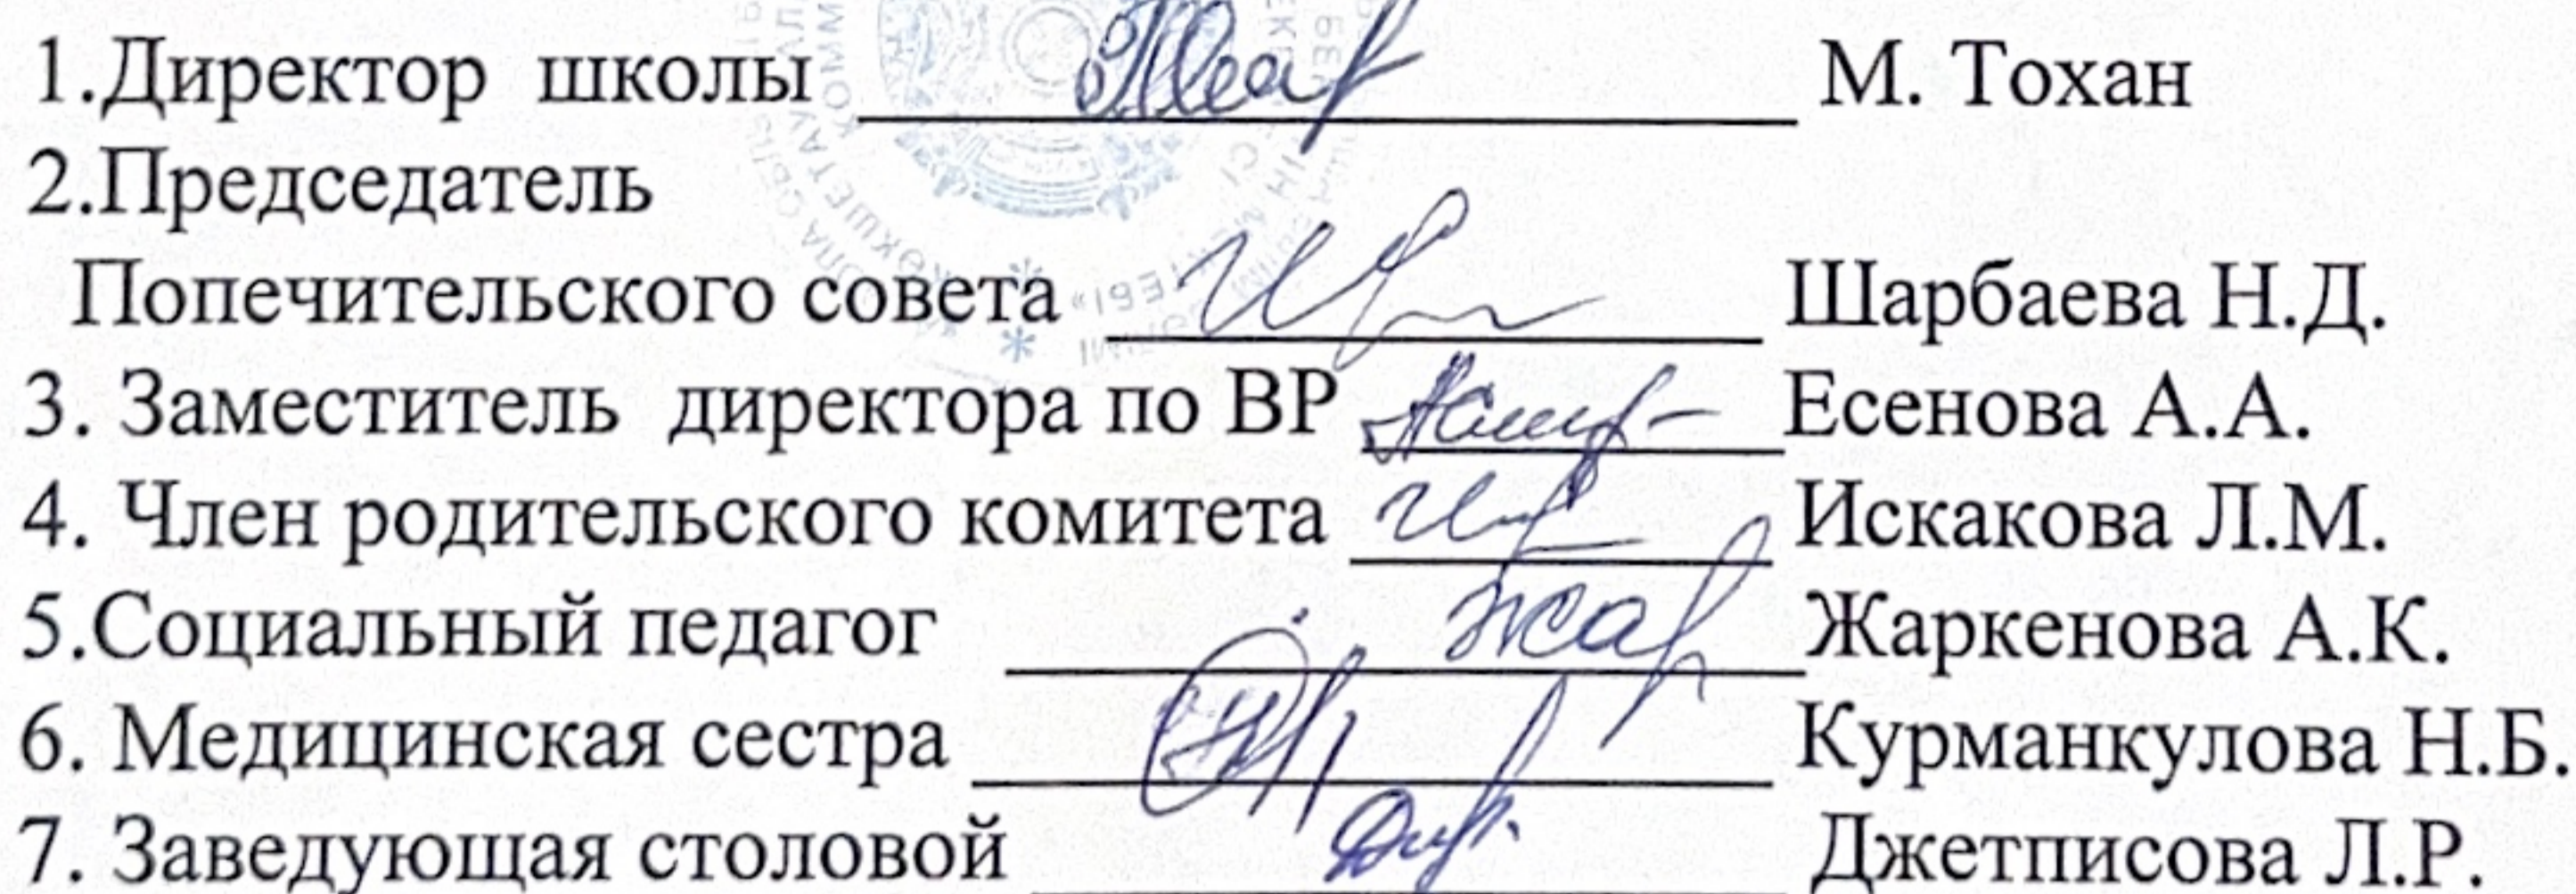 1.Директор школы М. Тохан
2.Председатель
Попечительского совета Шарбаева Н.Д.
3. Заместитель директора по ВР Есенова А.А.
4. Член родительского комитета Искакова Л.М.
5.Социальный педагог Жаркенова А.К.
6. Медицинская сестра Курманкулова Н.Б.
7. Заведующая столовой Джетписова Л.Р.